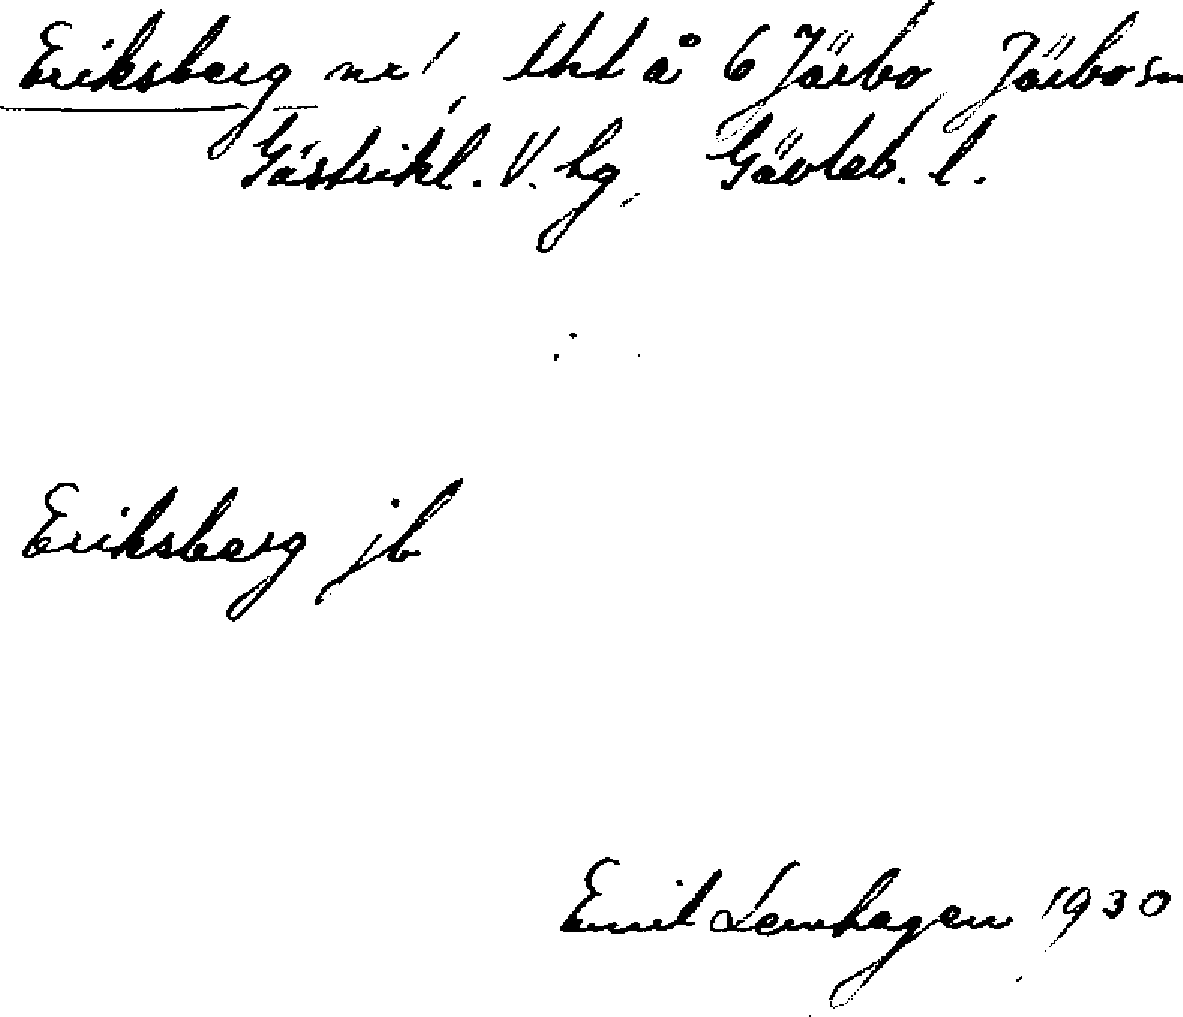 Eriksberg nr 1, lht å 6 Järbo, Järbo sn
Gästrikl. V. hg, Gävleb. l.
Eriksberg jb
Emil Lenhagen 1930